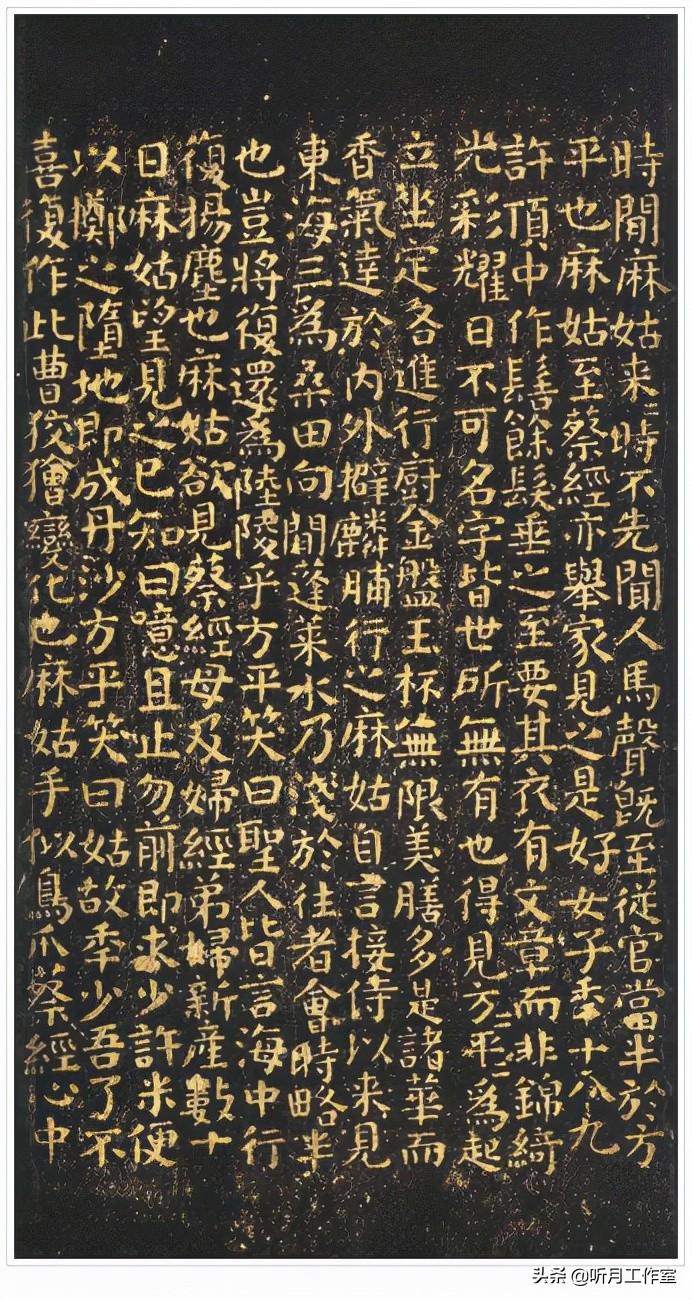 時間麻姑来〻時不先聞人馬聲既至從官當半於方
平也麻姑至蔡經亦舉家見之是好女子秊十八九
許頂中作髻餘髮垂之至要其衣有文章而非錦綺
光彩耀日不可名字皆世所無有也得見方〻平〻為起
立坐定各進行廚金盤玉杯無限美膳多是諸華而
香氣達於内外擗麟脯行之麻姑自言接侍以来見
東海三為桑田向間蓬萊水乃淺於往者會時略半
也豈將復還為陸陵乎方平笑曰聖人皆言海中行
復揚塵也麻姑欲見蔡經母及婦經弟婦新產數十
日麻姑望見之已知曰噫且止勿前即求少許米便
以擲之墮地即成丹沙方平笑曰姑故秊少吾了不
喜復作此曹狡獪變化也麻姑手似鳥爪蔡經心中
头条 @听月工作室